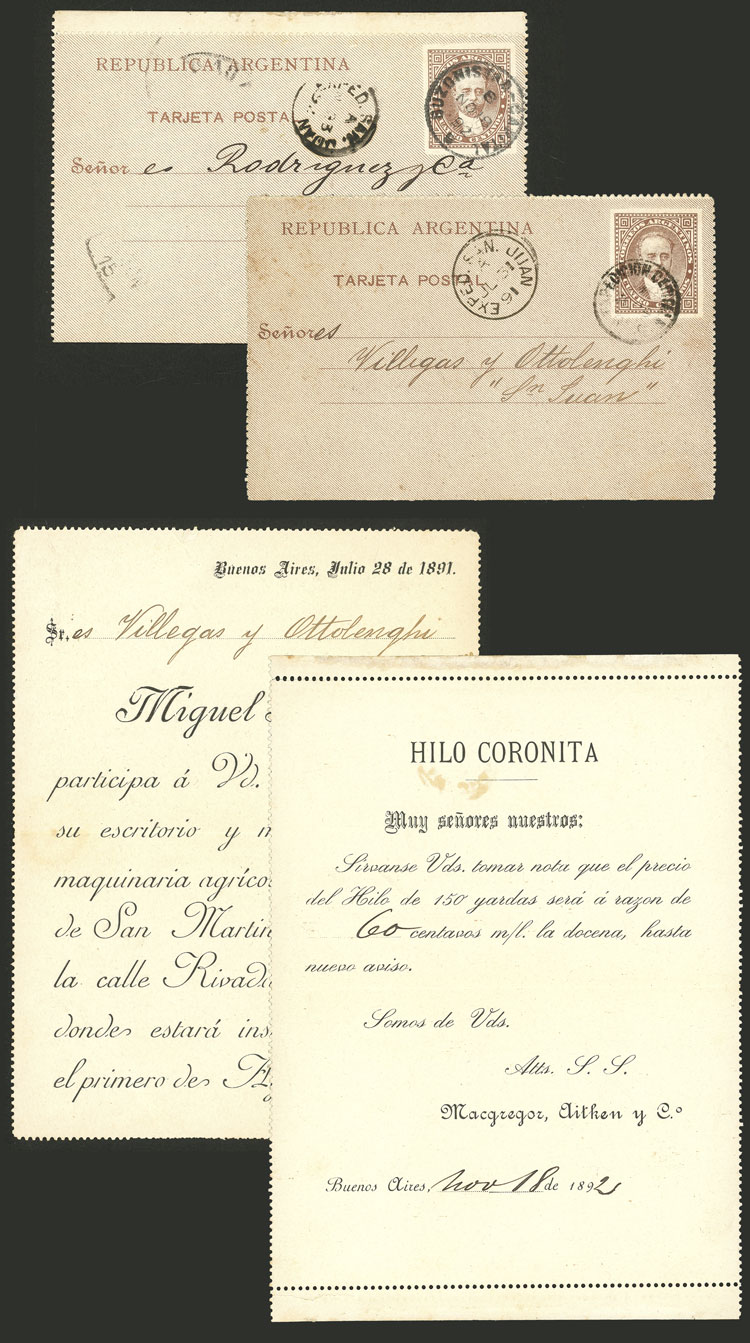 REPUBLICA ARGENTINA
TARJETA POSTAL
EXPED. SAN. JUAN
BUZONISTAS
Señores Rodriguez y Cª
15
REPUBLICA ARGENTINA
TARJETA POSTAL
EXPED. SAN. JUAN
16
Señores
Villegas y Ottolenghi
"Sn Juan"
Buenos Aires, Julio 28 de 1891.
Sr.es Villegas y Ottolenghi
Miguel
participa á Vd.
su escritorio y
maquinaria
de San Martin
la calle
donde estará
el primero de
HILO CORONITA
Muy señores nuestros:
Sírvanse Vds. tomar nota que el precio
del Hilo de 150 yardas será á razon de
60 centavos m/l. la docena, hasta
nuevo aviso.
Somos de Vds.
Atts. S. S.
Macgregor, Aitken y C.º
Buenos Aires, Nov 18 de 1892